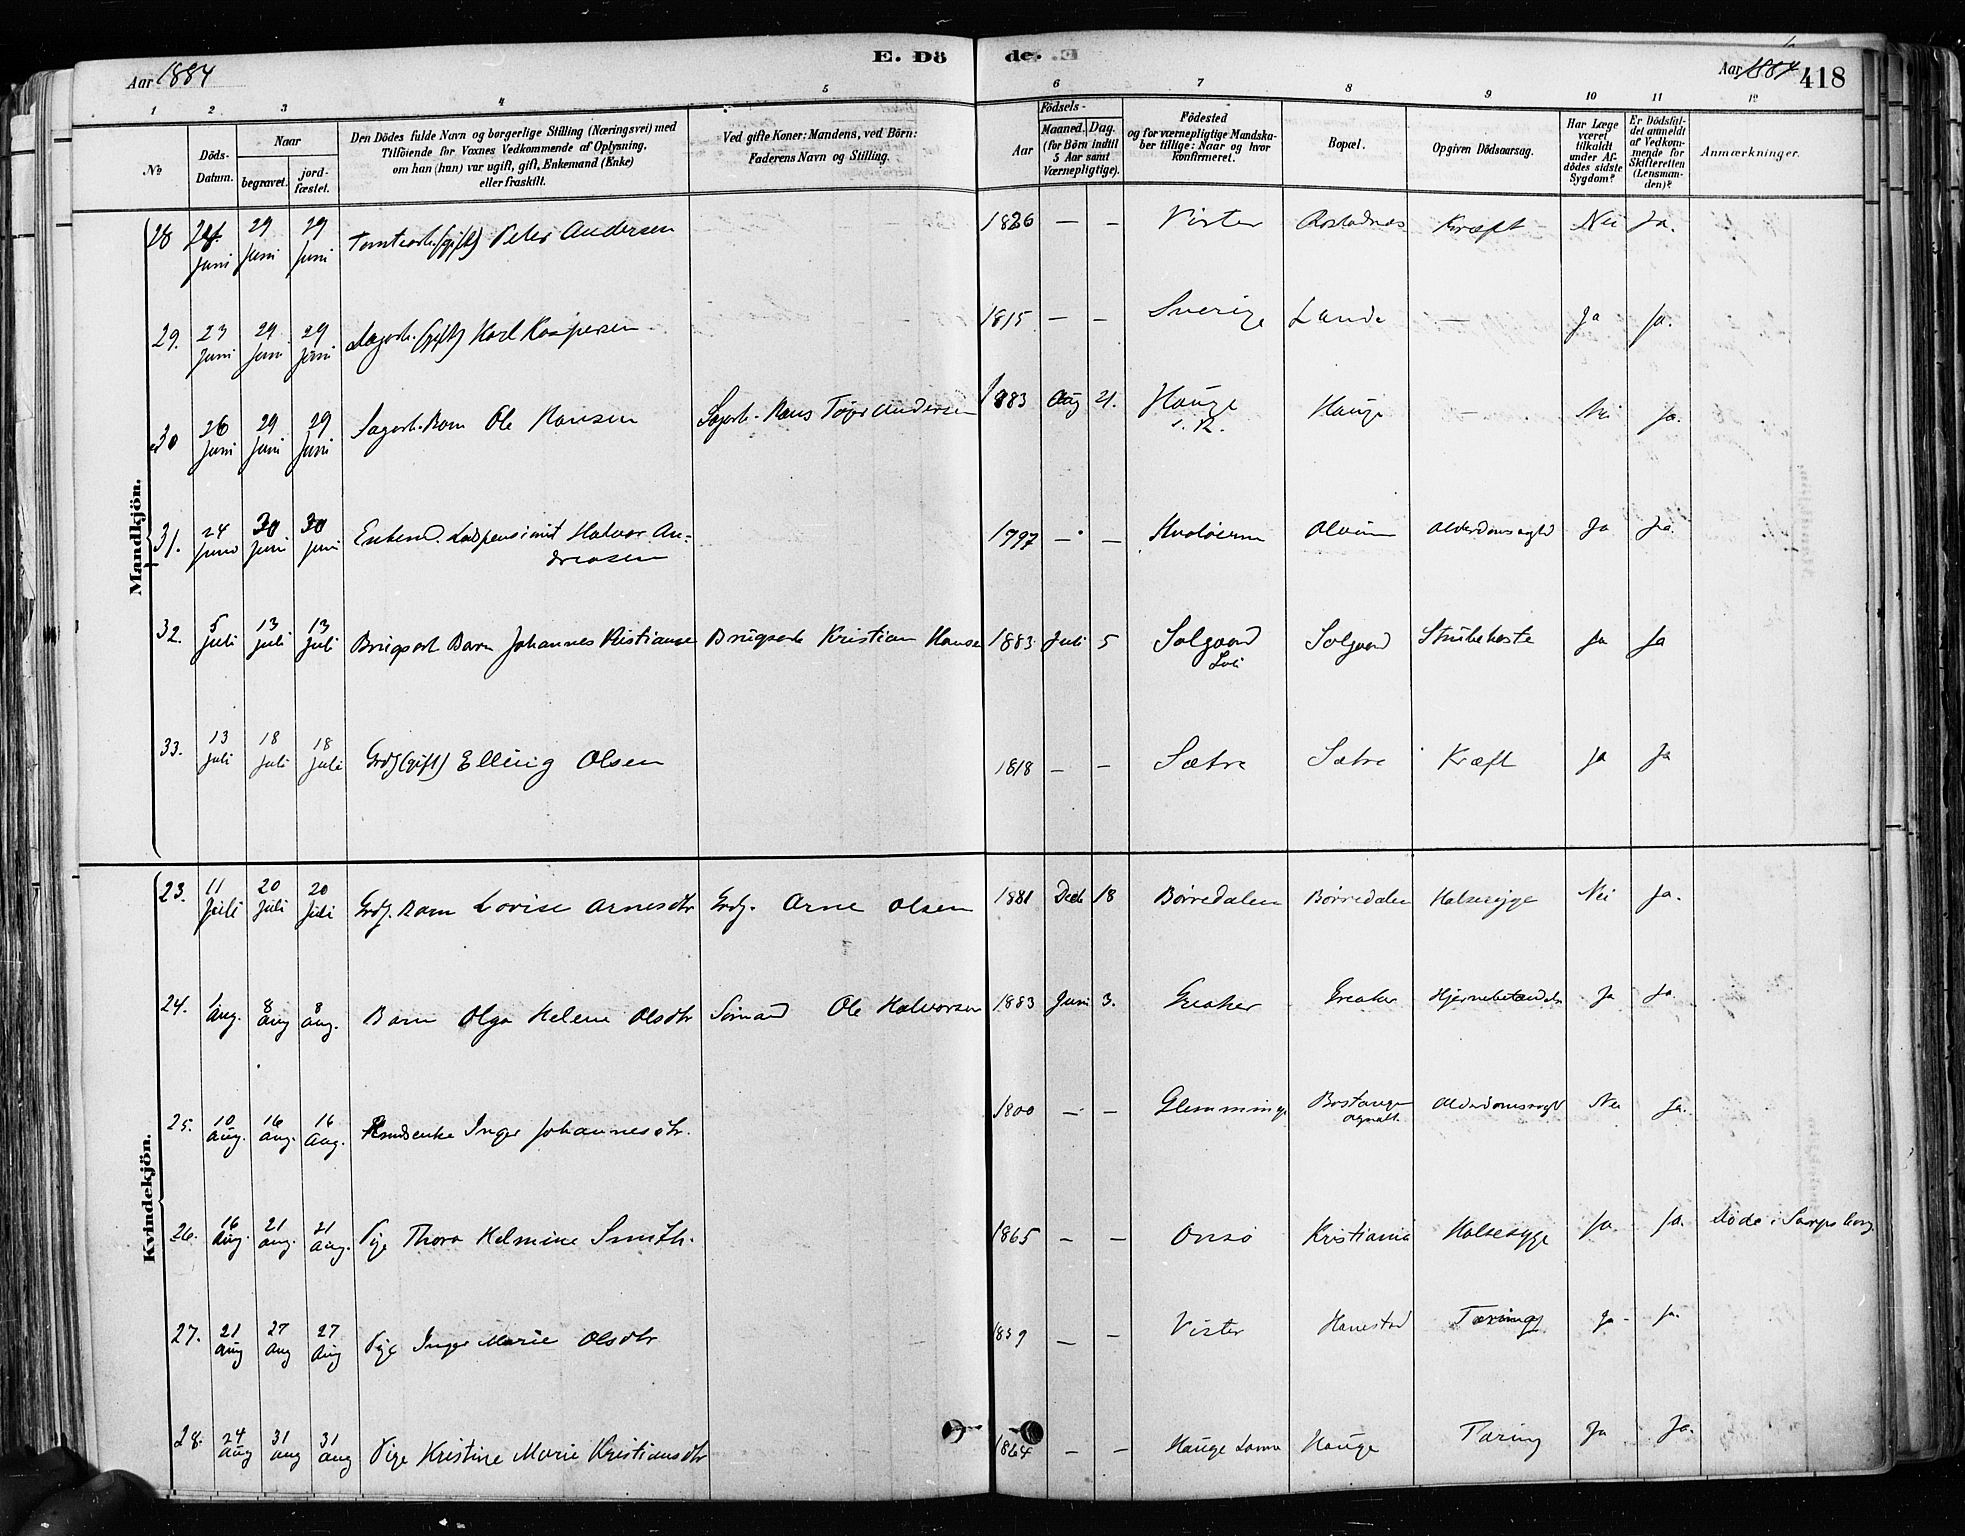 E. Dö de.
Aar 1884
Aar 1884 418
1 2 3 4 5 6 7 8 9 10 11 12
№
Döds-Datum.
Naar
begravet.
jord-fæstet.
Den Dödes fulde Navn og borgerlige Stilling (Næringsvei) med
Tilföiende for Voxnes Vedkommende af Oplysning,
om han (hun) var ugift, gift, Enkemand (Enke)
eller fraskilt.
Ved gifte Koner: Mandens, ved Börn:
Faderens Navn og Stilling.
Födsels-
Aar
Maaned. Dag.
(for Börn indtil
5 Aar samt
Værnepligtige).
Födested
og for værnepligtige Mandska-
ber tillige: Naar og hvor
Konfirmeret.
Bopæl.
Opgiven Dödsaarsag.
Har Læge
været
tilkaldt
under Af-
dödes sidste
Sygdom?
Er Dödsfal-
det anmeldt
af Vedkom-
mende for
Skifteretten
(Lensman-
den)?
Anmærkninger.
Mandkjön.
28 Juni 29 Juni 29 Juni (gift) Peter Andersen 1826 — — Vister Kræft Nei Ja.
29. 23 Juni 29 Juni 29 Juni (gift) Karl Kaspersen 1815 — — Sverige Lande — Ja Ja.
30 26 Juni 29 Juni 29 Juni Sagarb. Barn Ole Hansen Sagarb. Hans Andersen 1883 Aug 21. Hauge Hauge — Nei Ja.
31. 24 Juni 30 Juni 30 Juni Halvor An-
dreasen 1797 — — Hvaløerne Alderdomssvaghd Ja Ja.
32. 5 Juli 13 Juli 13 Juli Brugsarb Barn Johannes Kristianse Brugsarb Kristian Hanse 1883 Juli 5 Solgaard Solgaard Strubehoste Ja Ja
33. 13 Juli 18 Juli 18 Juli Grdj (gift) Elling Olsen 1818 — — Sætre Sætre Kræft Ja Ja
Kvindekjön.
23. 11 Juli 20 Juli 20 Juli Grdj. Barn Lovise Arnesdtr Grdj. Arne Olsen 1881 Decb 18 Børredalen Børredalen Halssyge Nei Ja.
24. 1 Aug. 8 Aug 8 Aug. Barn Olga Helene Olsdtr Sömand Ole Halvorsen 1883 Juni 3. Greaker Greaker Hjernebetændelse Ja Ja
25. 10 Aug. 16 Aug. 16 Aug. Inger Johannesdtr. 1800 — — Glemminge Alderdomssvaghd Nei Ja.
26. 16 Aug. 21 Aug. 21 Aug. Pige Thora Helmine Smith. 1865 — — Onsö Kristiania Halssyge Ja Ja. Döde i Sarpsborg
27. 21 Aug 27 Aug 27 Aug Pige Inger Marie Olsdtr 1859 — — Vister Hanestad Tæring Ja Ja.
28. 24 Aug 31 Aug 31 Aug Pige Kristine Marie Kristiansdtr 1864 — — Hauge Hauge Tæring Ja Ja.